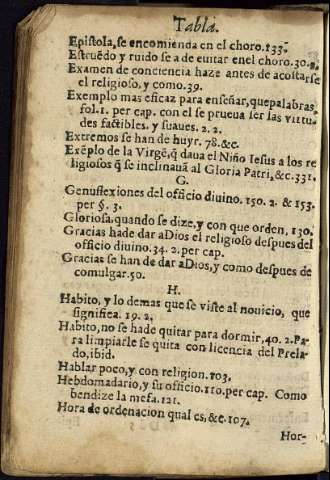 Tabla.
Epistola, se encomienda en el choro. 133.
Estruẽdo y ruido se a de euitar enel choro. 30.
Examen de conciencia haze antes de acostarse
el religioso, y como. 39.
Exemplo mas eficaz para enseñar, que palabras,
fol. 1. per cap. con el se prueua ser las virtu-
des factibles, y suaues. 2. 2.
Extremos se han de huyr. 78. &c.
Exẽplo de la Virgẽ, q̃ daua el Niño Iesus a los re
ligiosos q̃ se inclinauã al Gloria Patri, &c. 331.
G.
Genuflexiones del officio diuino. 150. 2. & 153.
per §. 3.
Gloriosa, quando se dize, y con que orden, 130.
Gracias hade dar aDios el religioso despues del
officio diuino. 34. 2. per cap.
Gracias se han de dar aDios, y como despues de
comulgar. 50.
H.
Habito, y lo demas que se viste al nouicio, que
significa. 19. 2.
Habito, no se hade quitar para dormir, 40. 2. Pa-
ra limpiarle se quita con licencia del Prela-
do, ibid.
Hablar poco, y con religion. 103.
Hebdomadario, y su officio. 110. per cap. Como
bendize la mesa. 121.
Hora de ordenacion qual es, &c. 107.
Hor-